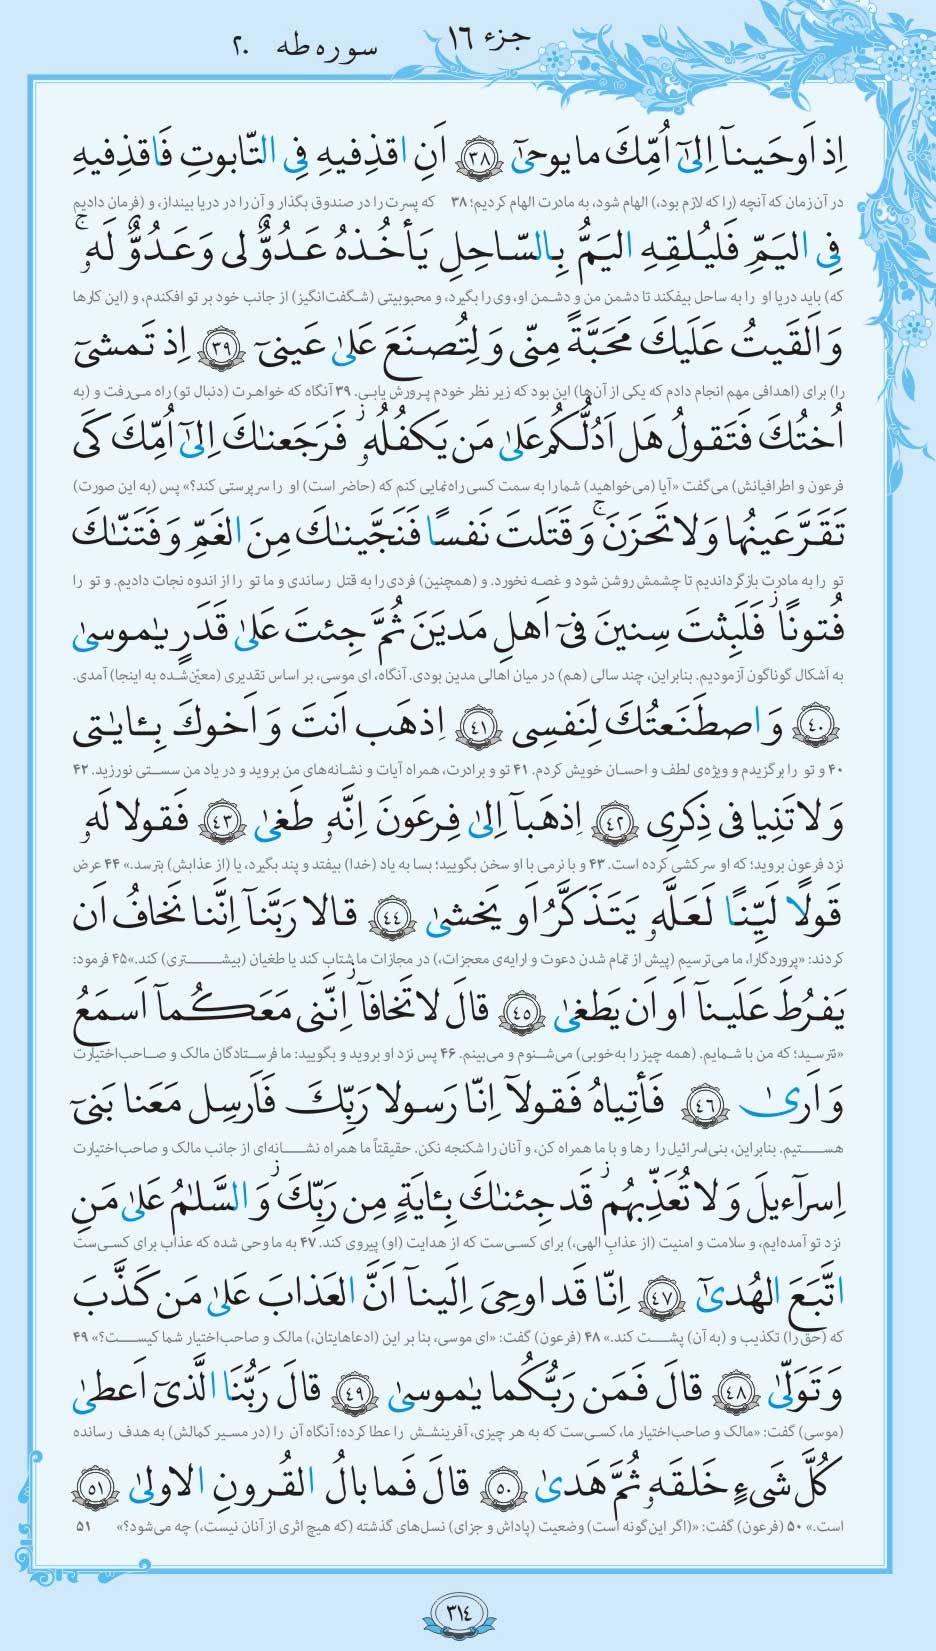 جزء ١٦
سوره طه ٢٠
اِذ اَوحَینآ اِلیٰٓ اُمِّكَ ما یوحیٰٓ ﴿٣٨﴾ اَنِ اقذِفیهِ فِی التّابوتِ فَاقذِفیهِ
در آن زمان که آنچه (را که لازم بود،) الهام شود، به مادرت الهام کردیم؛ ۳۸ که پسرت را در صندوق بگذار و آن را در دریا بینداز، و (فرمان دادیم
فِی الیَمِّ فَلیُلقِهِ الیَمُّ بِالسّاحِلِ یَأخُذهُ عَدُوٌّ لی وَ عَدُوٌّ لَه ۥۚ
که) باید دریا او را به ساحل بیفکند تا دشمن من و دشمن او، وی را بگیرد، و محبوبیتی (شگفت‌انگیز) از جانب خود بر تو افکندم، و (این کارها
وَ اَلقَیتُ عَلَیكَ مَحَبَّةً مِنّی وَ لِتُصنَعَ عَلیٰ عَینیٓ ﴿٣٩﴾ اِذ تَمشیٓ
را) برای (اهدافی مهم انجام دادم که یکی از آن‌ها) این بود که زیر نظر خودم پرورش یابی. ۳۹ آنگاه که خواهرت (دنبال تو) راه می‌رفت و (به
اُختُكَ فَتَقولُ هَل اَدُلُّكُم عَلیٰ مَن یَكفُلُه ۥۖ فَرَجَعناكَ اِلیٰٓ اُمِّكَ كَی
فرعون و اطرافیانش) می‌گفت «آیا (می‌خواهید) شما را به سمت کسی راه‌نمایی کنم که (حاضر است) او را سرپرستی کند؟» پس (به این صورت)
تَقَرَّ عَینُها وَ لا تَحزَنَ ۚ وَ قَتَلتَ نَفسًا فَنَجَّیناكَ مِنَ الغَمِّ وَ فَتَنّاكَ
تو را به مادرت بازگرداندیم تا چشمش روشن شود و غصه نخورد. و (همچنین) فردی را به قتل رساندی و ما تو را از اندوه نجات دادیم. و تو را
فُتونًا ۚ فَلَبِثتَ سِنینَ فیٓ اَهلِ مَدیَنَ ثُمَّ جِئتَ عَلیٰ قَدَرٍ یٰموسیٰ
به اَشکال گوناگون آزمودیم. بنابراین، چند سالی (هم) در میان اهالی مدین بودی. آنگاه، ای موسی، بر اساس تقدیری (معیّن‌شده به اینجا) آمدی.
﴿٤٠﴾ وَ اصطَنَعتُكَ لِنَفسِی ﴿٤١﴾ اِذهَب اَنتَ وَ اَخوكَ بِـٔایٰتی
۴۰ و تو را برگزیدم و ویژه‌ی لطف و احسان خویش کردم. ۴۱ تو و برادرت، همراه آیات و نشانه‌های من بروید و در یاد من سستی نورزید. ۴۲
وَ لا تَنِیا فی ذِكرِی ﴿٤٢﴾ اِذهَبآ اِلیٰ فِرعَونَ اِنَّه ۥ طَغیٰ ﴿٤٣﴾ فَقولا لَه ۥ
نزد فرعون بروید؛ که او سرکشی کرده است. ۴۳ و با نرمی با او سخن بگویید؛ بسا به یاد (خدا) بیفتد و پند بگیرد، یا (از عذابش) بترسد.» ۴۴ عرض
قَولًا لَیِّنًا لَعَلَّه ۥ یَتَذَكَّرُ اَو یَخشیٰ ﴿٤٤﴾ قالا رَبَّنآ اِنَّنا نَخافُ اَن
کردند: «پروردگارا، ما می‌ترسیم (پیش از تمام شدن دعوت و ارایه‌ی معجزات،) در مجازات ما شتاب کند یا طغیان (بیشتری) کند.»۴۵ فرمود:
یَفرُطَ عَلَینآ اَو اَن یَطغیٰ ﴿٤٥﴾ قالَ لا تَخافآ ۖ اِنَّنی مَعَكُمآ اَسمَعُ
«نترسید؛ که من با شمایم. (همه چیز را به‌خوبی) می‌شنوم و می‌بینم. ۴۶ پس نزد او بروید و بگویید: ما فرستادگان مالک و صاحب‌اختیارت
وَ اَریٰ ﴿٤٦﴾ فَأتِیاهُ فَقولآ اِنّا رَسولا رَبِّكَ فَاَرسِل مَعَنا بَنیٓ
هستیم. بنابراین، بنی‌اسرائیل را رها و با ما همراه کن، و آنان را شکنجه نکن. حقیقتاً ما همراه نشانه‌ای از جانب مالک و صاحب‌اختیارت
اِسرآءیلَ وَ لا تُعَذِّبهُم ۖ قَد جِئناكَ بِـٔایَةٍ مِن رَبِّكَ ۖ وَ السَّلامُ عَلیٰ مَنِ
نزد تو آمده‌ایم، و سلامت و امنیت (از عذابِ الهی،) برای کسی‌ست که از هدایت (او) پیروی کند. ۴۷ به ما وحی شده که عذاب برای کسی‌ست
اتَّبَعَ الهُدیٰٓ ﴿٤٧﴾ اِنّا قَد اوحِیَ اِلَینآ اَنَّ العَذابَ عَلیٰ مَن كَذَّبَ
که (حق را) تکذیب و (به آن) پشت کند.» ۴۸ (فرعون) گفت: «ای موسی، بنا بر این (ادعاهایتان،) مالک و صاحب‌اختیار شما کیست؟» ۴۹
وَ تَوَلّیٰ ﴿٤٨﴾ قالَ فَمَن رَبُّكُما یٰموسیٰ ﴿٤٩﴾ قالَ رَبُّنَا الَّذیٓ اَعطیٰ
(موسی) گفت: «مالک و صاحب‌اختیار ما، کسی‌ست که به هر چیزی، آفرینشش را عطا کرده؛ آنگاه آن را (در مسیر کمالش) به هدف رسانده
كُلَّ شَیءٍ خَلقَه ۥ ثُمَّ هَدیٰ ﴿٥٠﴾ قالَ فَما بالُ القُرونِ الاولیٰ ﴿٥١﴾
است.» ۵۰ (فرعون) گفت: «(اگر این‌گونه است) وضعیت (پاداش و جزای) نسل‌های گذشته (که هیچ اثری از آنان نیست،) چه می‌شود؟» ۵۱
٣١٤